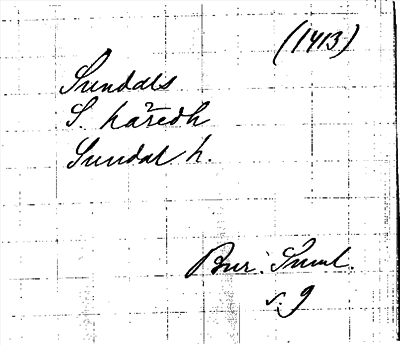 (1413)
Sundals
S. häredh
Sundal h.
Bur. Suml.
s. 9